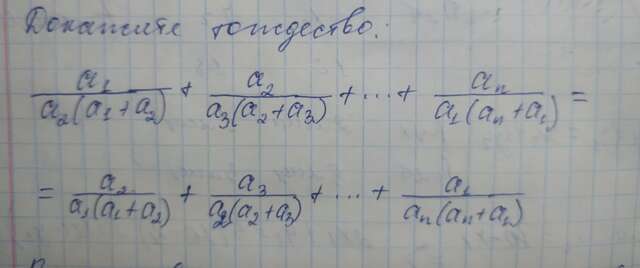 Докажите тождество:
a₁/(a₂(a₁+a₂)) + a₂/(a₃(a₂+a₃)) + ... + aₙ/(a₁(aₙ+a₁)) =
= a₂/(a₁(a₁+a₂)) + a₃/(a₂(a₂+a₃)) + ... + a₁/(aₙ(aₙ+a₁))